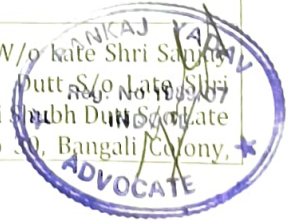 W/o kate Shri Sanjay
Dutt S/o Late Shri
Shubh Dutt S/o Late
Bangali Colony,
PANKAJ YADAV
Reg. No
INDORE
ADVOCATE